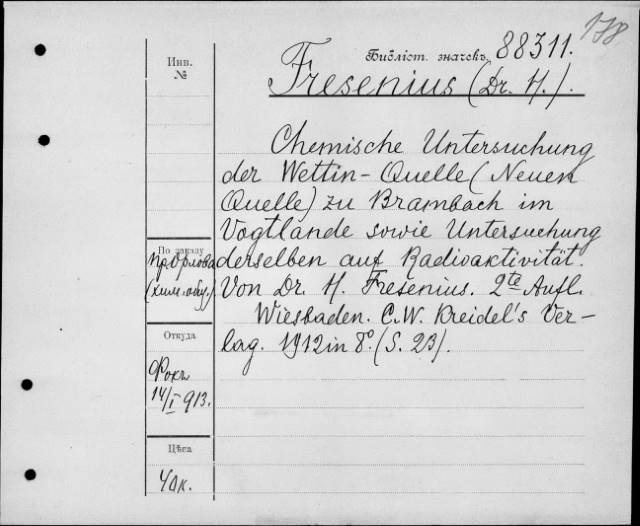 178
Инв.
№
Библіот. значекъ 88311.
Fresenius (Dr. H.).
Chemische Untersuchung
der Wettin-Quelle (Neuen
Quelle) zu Brambach im
Vogtlande sowie Untersuchung
derselben auf Radioaktivität.
Von Dr. H. Fresenius. 2te Aufl.
Wiesbaden. C.W. Kreidel's Ver-
lag. 1912 in 8°. (S. 23).
По заказу
пр. Орлова
(хим. общ.).
Откуда
Фокъ
14/I 913.
Цѣна